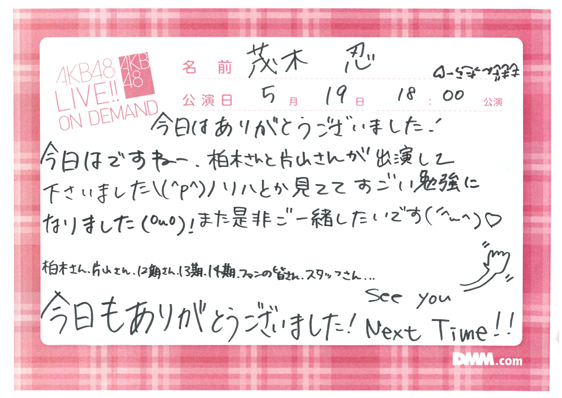 AKB48
LIVE!!
ON DEMAND
AKB
48
名前 茂木 忍
公演日 5月 19日 18:00 公演
今日はありがとうございました!
今日はですねー、柏木さんと片山さんが出演して
下さいました\(^p^)ノリハとか見ててすごい勉強に
なりました(OuO)!また是非ご一緒したいです(´^~^`)♡
柏木さん、片山さん、12期さん、13期、14期、ファンの皆さん、スタッフさん...
See you
今日もありがとうございました! Next Time!!
DMM.com